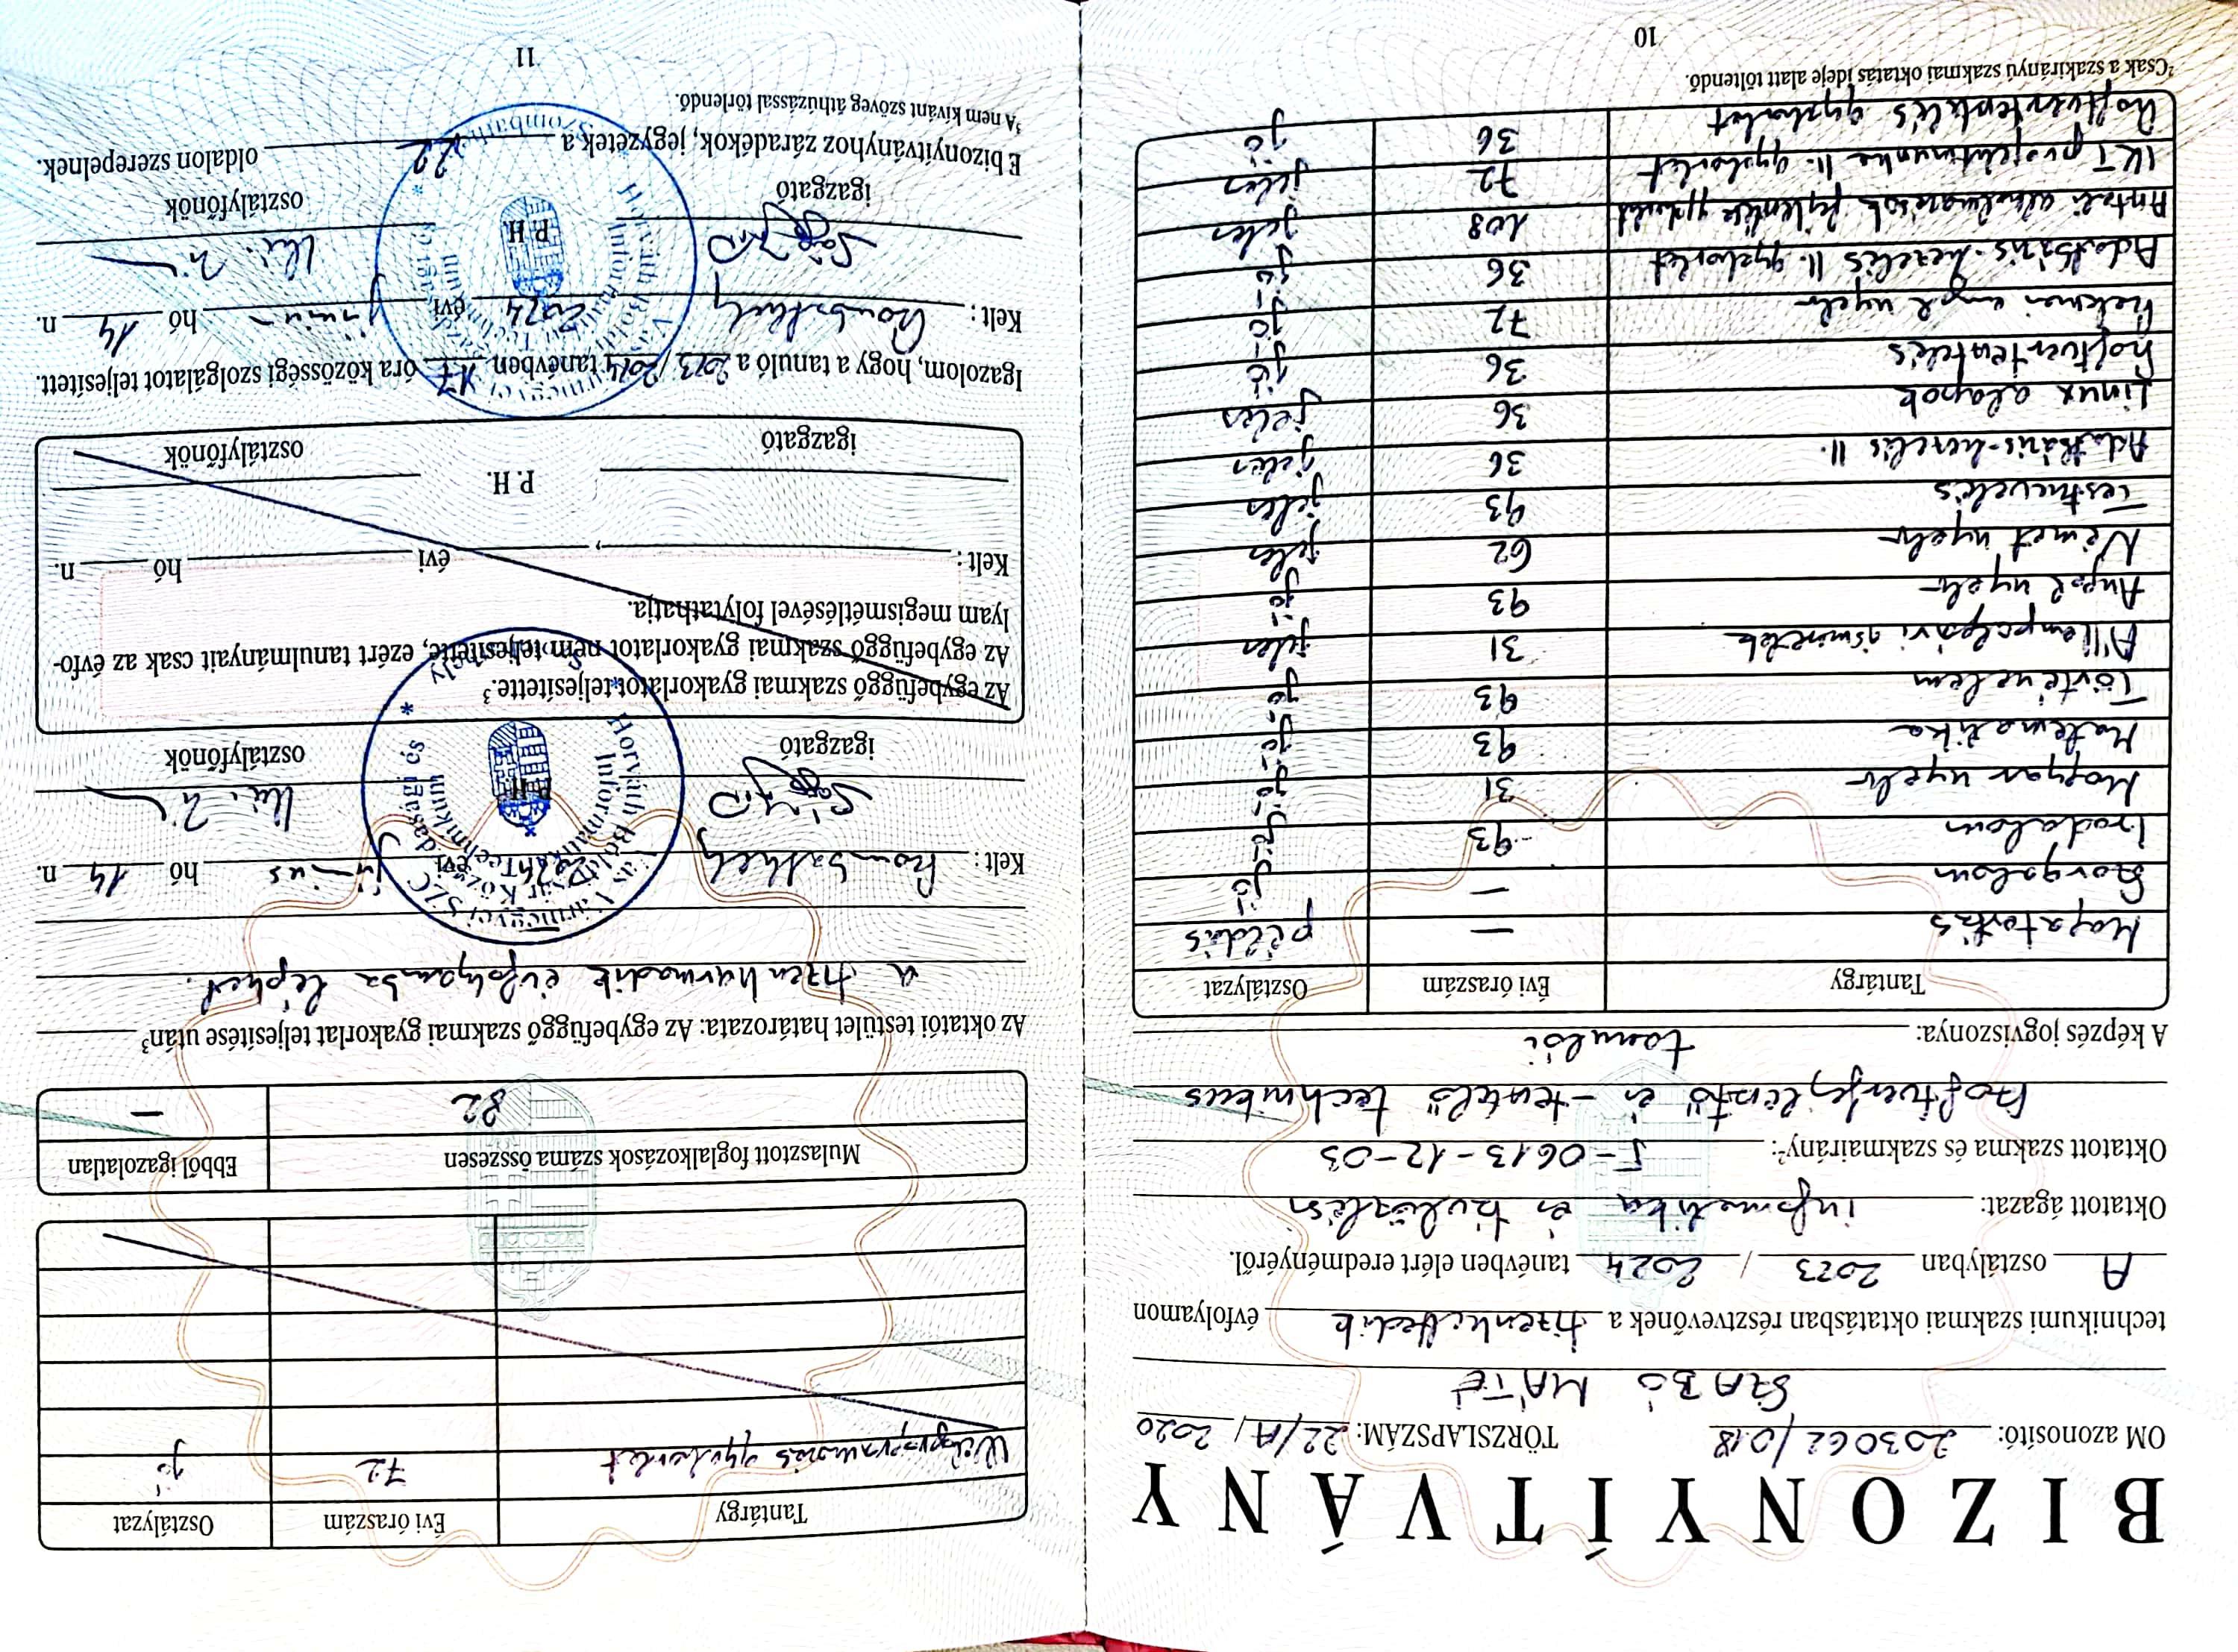 BIZONYÍTVÁNY
OM azonosító: 203062/018 TÖRZSLAPSZÁM: 22/A/ 2020
SZABÓ MÁTÉ
technikumi szakmai oktatásban résztvevőnek a tizenkettedik évfolyamon
A osztályban 2023 / 2024 tanévben elért eredményéről.
Oktatott ágazat: informatika és távközlési
Oktatott szakma és szakmairány²: 5-0613-12-03
Szoftverfejlesztő és -tesztelő technikus
A képzés jogviszonya: tanulói
Tantárgy Évi óraszám Osztályzat
Magatartás — példás
Szorgalom — jó
Irodalom 93 jó
Magyar nyelv 31 jó
Matematika 93 jó
Történelem 93 jó
Állampolgári ismeretek 31 jeles
Angol nyelv 93 jó
Német nyelv 62 jeles
Testnevelés 93 jeles
Adatbázis-kezelés II. 36 jeles
Linux alapok 36 jeles
Szoftvertesztelés 36 jó
Szakmai angol nyelv 72 jó
Adatbázis-kezelés II. gyakorlat 36 jó
Asztali alkalmazások fejlesztése gyakorlat 108 jeles
IKT projektmunka II. gyakorlat 72 jeles
Szoftvertesztelés gyakorlat 36 jó
²Csak a szakirányú szakmai oktatás ideje alatt töltendő.
10
Tantárgy Évi óraszám Osztályzat
Webprogramozás gyakorlat 72 jó
Mulasztott foglalkozások száma összesen Ebből igazolatlan
82 —
Az oktatói testület határozata: Az egybefüggő szakmai gyakorlat teljesítése után³
a tizenharmadik évfolyamba léphet.
Kelt: Szombathely 2024 évi június hó 14 n.
Vas Vármegyei SZC
Horváth Boldizsár Közgazdasági és
Informatikai Technikum
Szombathely
P. H.
igazgató osztályfőnök
Az egybefüggő szakmai gyakorlatot teljesítette.³
Az egybefüggő szakmai gyakorlatot nem teljesítette, ezért tanulmányait csak az évfo-
lyam megismétlésével folytathatja.
Kelt: , évi hó n.
P. H.
igazgató osztályfőnök
Igazolom, hogy a tanuló a 2023/2024 tanévben 17 óra közösségi szolgálatot teljesített.
Kelt: Szombathely 2024 évi június hó 14 n.
P. H.
igazgató osztályfőnök
E bizonyítványhoz záradékok, jegyzetek a 22 oldalon szerepelnek.
³A nem kívánt szöveg áthúzással törlendő.
11